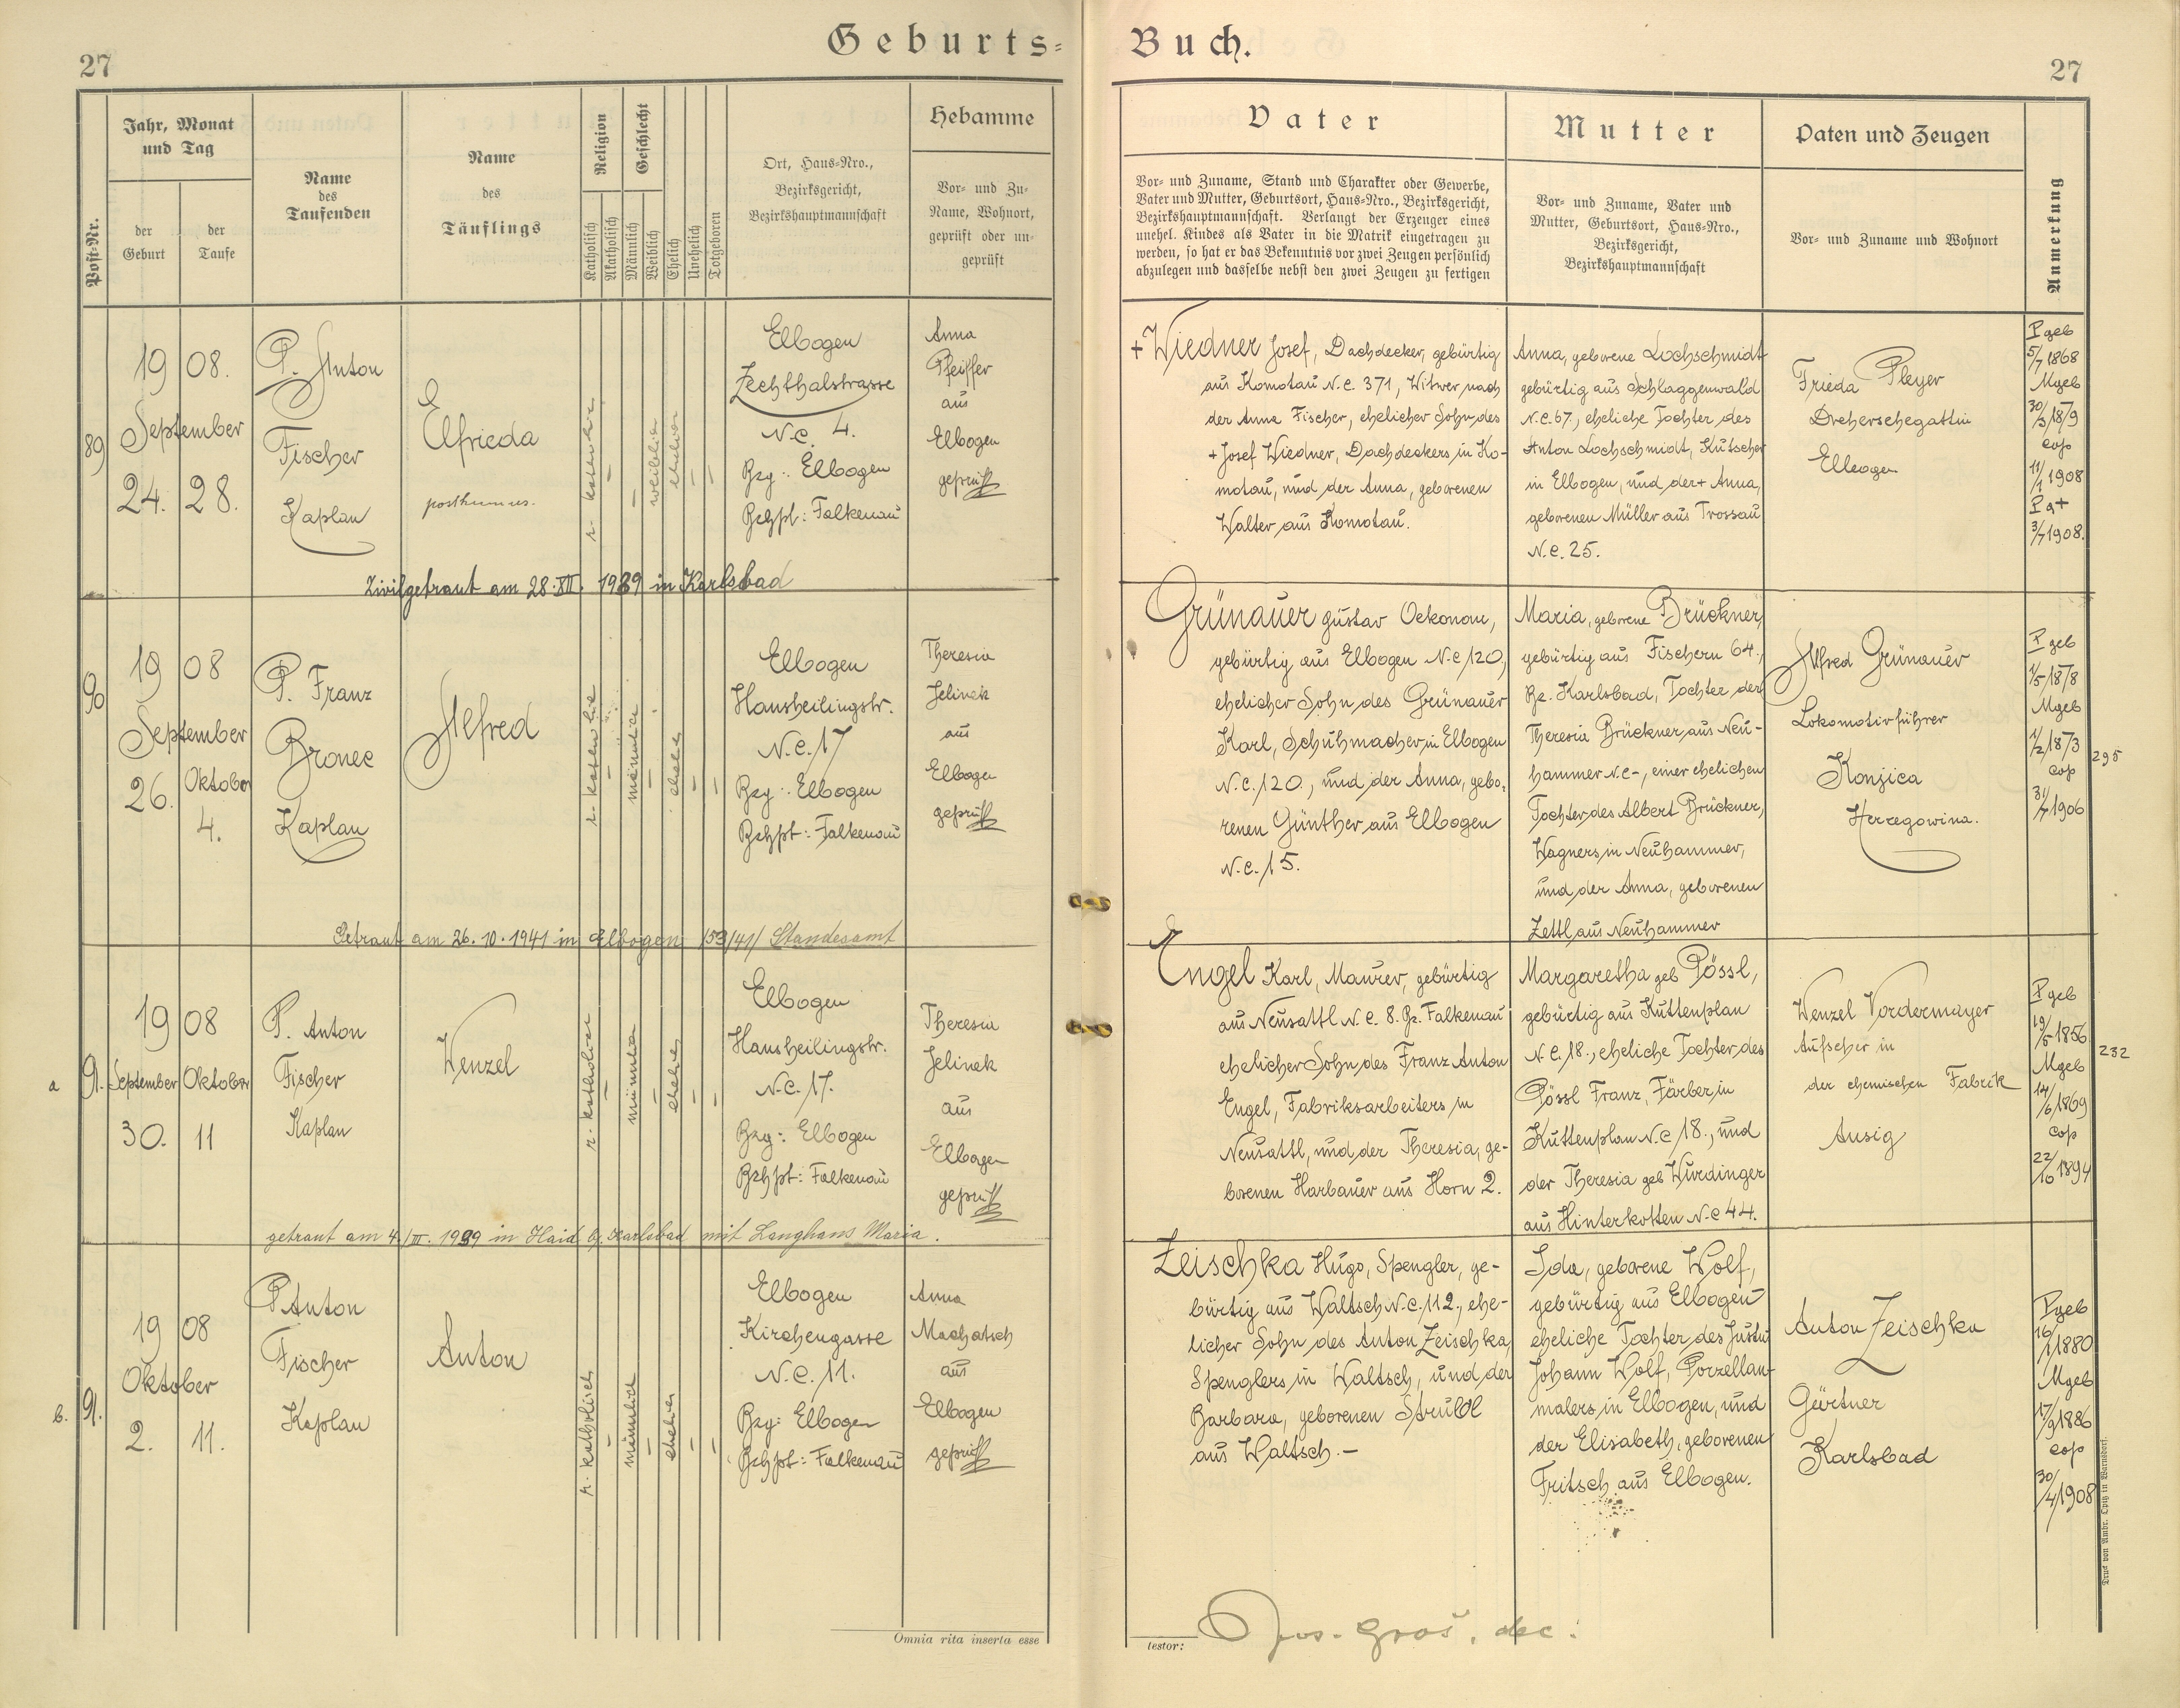 27
Geburts=
Buch.
27
Post-Nr.
Jahr, Monat
und Tag
der
Geburt
der
Taufe
Name
des
Taufenden
Name
des
Täuflings
Religion
Katholisch
Akatholisch
Geschlecht
Männlich
Weiblich
Ehelich
Unehelich
Totgeboren
Ort, Haus=Nro.,
Bezirksgericht,
Bezirkshauptmannschaft
Hebamme
Vor= und Zu=
Name, Wohnort,
geprüft oder un=
geprüft
Vater
Vor= und Zuname, Stand und Charakter oder Gewerbe,
Vater und Mutter, Geburtsort, Haus=Nro., Bezirksgericht,
Bezirkshauptmannschaft. Verlangt der Erzeuger eines
unehel. Kindes als Vater in die Matrik eingetragen zu
werden, so hat er das Bekenntnis vor zwei Zeugen persönlich
abzulegen und dasselbe nebst den zwei Zeugen zu fertigen
Mutter
Vor= und Zuname, Vater und
Mutter, Geburtsort, Haus=Nro.,
Bezirksgericht,
Bezirkshauptmannschaft
Paten und Zeugen
Vor= und Zuname und Wohnort
Anmerkung
89
19 08.
September
24. 28.
P. Anton
Fischer
Kaplan
Elfrieda
posthumus.
r. katholisch
weiblich
ehelich
Elbogen
Zechthalstrasse
N.C. 4.
Bzg: Elbogen
Bzhpt: Falkenau
Anna
Pfeiffer
aus
Elbogen
geprüft
+ Wiedner Josef, Dachdecker, gebürtig
aus Komotau N.C. 371, Witwer nach
der Anna Fischer, ehelicher Sohn des
+ Josef Wiedner, Dachdeckers in Ko-
motau, und der Anna, geborenen
Walter aus Komotau.
Anna, geborene Lochschmidt
gebürtig aus Schlaggenwald
N.C. 67., eheliche Tochter des
Anton Lochschmidt, Kutscher
in Elbogen, und der + Anna,
geborenen Müller aus Trossau
N.C. 25.
Frieda Pleyer
Drehersehegattin
Elbogen
P geb
5/7 1868
M geb
30/3 1879
cop
11/1 1908
P a +
3/7 1908.
Zivilgetraut am 28. XII. 1939 in Karlsbad
90
19 08
September
26. Oktober
4.
P. Franz
Bronec
Kaplan
Alfred
r. katholisch
männlich
ehelich
Elbogen
Hansheilingstr.
N.C. 17
Bzg: Elbogen
Bzhpt: Falkenau
Theresia
Jelinek
aus
Elbogen
geprüft
Grünauer Gustav Oekonom,
gebürtig aus Elbogen N.C 120,
ehelicher Sohn des Grünauer
Karl, Schuhmacher in Elbogen
N.C. 120., und der Anna, gebo.
renen Günther aus Elbogen
N.C. 15.
Maria, geborene Brückner,
gebürtig aus Fischern 64.,
Bz. Karlsbad, Tochter der
Theresia Brückner, aus Neu-
hammer N.C -, einer ehelichen
Tochter des Albert Brückner,
Wagners in Neuhammer,
und der Anna, geborenen
Zettl aus Neuhammer
Alfred Grünauer
Lokomotivführer
Konjica
Herzegowina.
P geb
1/5 1878
M geb
1/2 1873
cop
31/7 1906
295
Getraut am 26. 10. 1941 in Elbogen /53/41/ Standesamt
a 91.
19 08
September Oktober
30. 11
P. Anton
Fischer
Kaplan
Wenzel
r. katholisch
männlich
ehelich
Elbogen
Hansheilingstr.
N.C. 17.
Bzg: Elbogen
Bzhpt: Falkenau
Theresia
Jelinek
aus
Elbogen
geprüft
Engel Karl, Maurer, gebürtig
aus Neusattl N.C. 8. Bz. Falkenau
ehelicher Sohn des Franz Anton
Engel, Fabriksarbeiters in
Neusattl, und der Theresia, ge-
borenen Harbauer aus Horn 2.
Margaretha geb Pössl,
gebürtig aus Kuttenplan
N.C. 18., eheliche Tochter des
Pössl Franz, Färber in
Kuttenplan N.C 18., und
der Theresia geb Wurdinger
aus Hinterkotten N.C 44.
Wenzel Vordermayer
Aufseher in
der chemischen Fabrik
Aussig
P geb
19/5 1856
M geb
14/6 1869
cop
22/10 1894
232
getraut am 4./III. 1939 in Haid b/ Karlsbad mit Langhans Maria.
b. 91.
19 08
Oktober
2. 11.
P Anton
Fischer
Kaplan
Anton
r. katholisch
männlich
ehelich
Elbogen
Kirchengasse
N.C. 11.
Bzg: Elbogen
Bzhpt: Falkenau
Anna
Machatsch
aus
Elbogen
geprüft
Zeischka Hugo, Spengler, ge-
bürtig aus Waltsch N.C. 112., ehe-
licher Sohn des Anton Zeischka,
Spenglers in Waltsch, und der
Barbara, geborenen
aus Waltsch. -
Ida, geborene Wolf,
gebürtig aus Elbogen
eheliche Tochter des
Johann Wolf, Porzellan-
malers in Elbogen, und
der Elisabeth, geborenen
Fritsch aus Elbogen.
Anton Zeischka
Gärtner
Karlsbad
P geb
16/1 1880
M geb
17/9 1886
cop
30/4 1908
Omnia rita inserta esse
testor:
Jos. Groš, dec.
Druck von Ambr. Opitz in Warnsdorf.